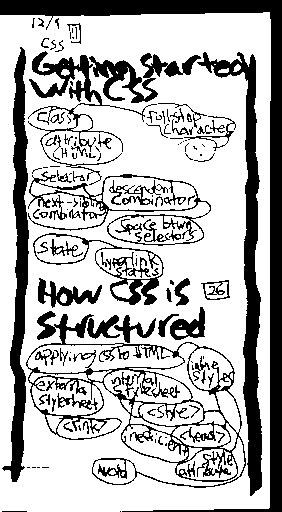 12/9 1
CSS
Getting Started
with CSS
class
full stop
character
.
attribute
(HTML)
selector
descendent
combinator
next-sibling
combinator
space btwn
selectors
state
hyperlink
states
How CSS is 26
Structured
applying css to HTML
inline
styles
external
stylesheet
internal
stylesheet
<style>
<link>
<head>
inefficient
style
attribute
avoid